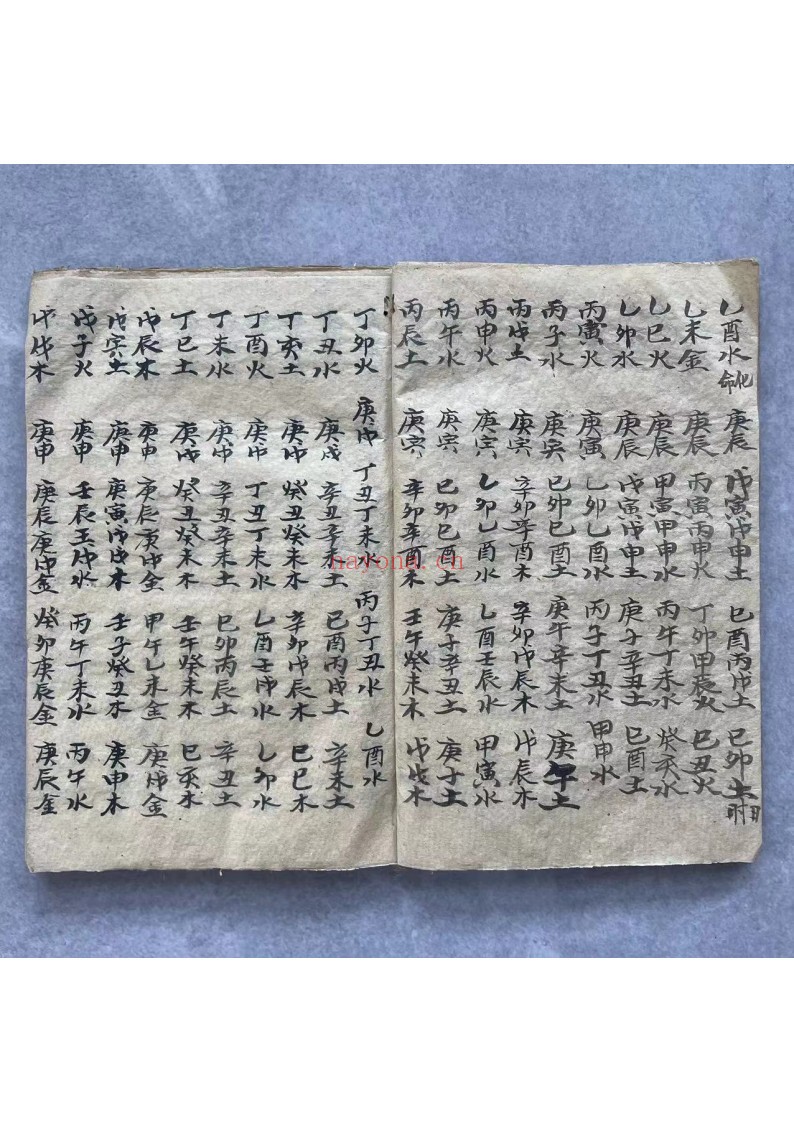 乙酉水化命 庚辰 戊寅戊申土 己酉丙戌土 己卯土日时
乙未金 庚辰 丙寅丙申火 丁卯甲辰火 己丑火
乙巳火 庚辰 甲寅甲申水 丙午丁未水 癸亥水
乙卯水 庚辰 戊寅戊申土 庚子辛丑土 己酉土
丙寅火 庚寅 乙卯乙酉水 丙子丁丑水 甲申水
丙子水 庚寅 己卯己酉土 庚午辛未土 庚午土
丙戌土 庚寅 辛卯辛酉木 辛卯戊辰木 戊辰木
丙申火 庚寅 乙卯乙酉水 乙酉壬辰水 甲寅水
丙午水 庚寅 己卯己酉土 庚子辛丑土 庚子土
丙辰土 庚寅 辛卯辛酉木 壬午癸未木 戊戌木
丁卯火 庚戌 丁丑丁未水 丙子丁丑水 乙酉水
丁丑水 庚戌 辛丑辛未土 己酉丙戌土 辛未土
丁亥土 庚戌 癸丑癸未木 辛卯戊辰木 己巳木
丁酉火 庚戌 丁丑丁未水 乙酉壬戌水 乙卯水
丁未水 庚戌 辛丑辛未土 己卯丙辰土 辛丑土
丁巳土 庚戌 癸丑癸未木 壬午癸未木 己亥木
戊辰木 庚申 庚辰庚戌金 甲午乙未金 庚戌金
戊寅土 庚申 庚寅戊戌木 壬子癸丑木 庚申木
戊子火 庚申 壬辰壬戌水 丙午丁未水 丙午水
戊戌木 庚申 庚辰庚戌金 癸卯庚辰金 庚辰金
nayona.cn